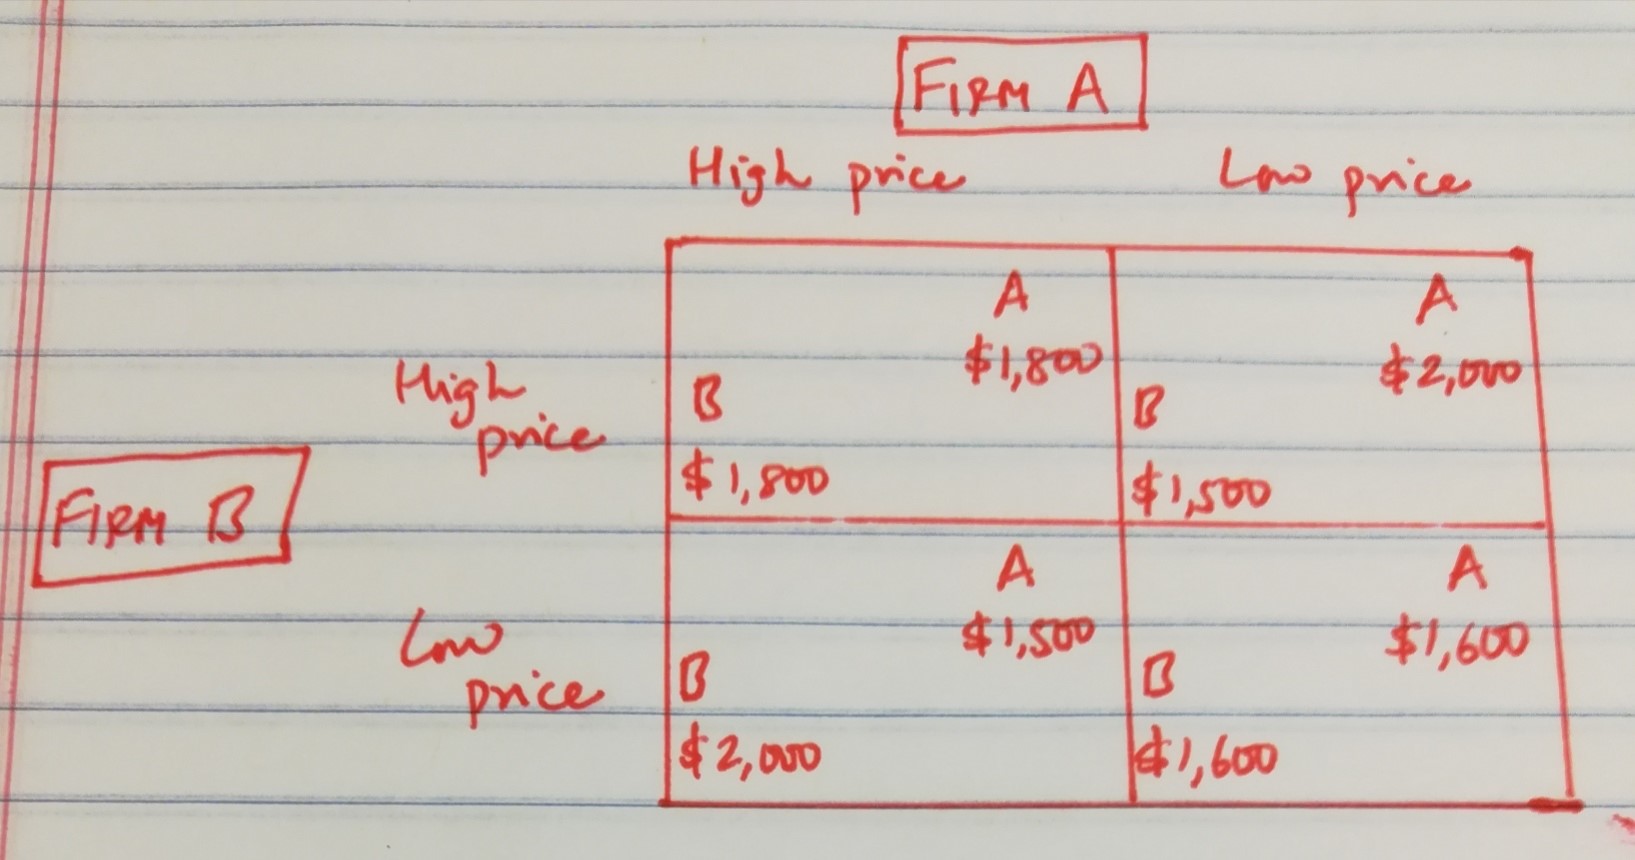 FIRM A
High price Low price
A A
$1,800 $2,000
High
price
B B
$1,800 $1,500
FIRM B
A A
$1,500 $1,600
Low
price
B B
$2,000 $1,600